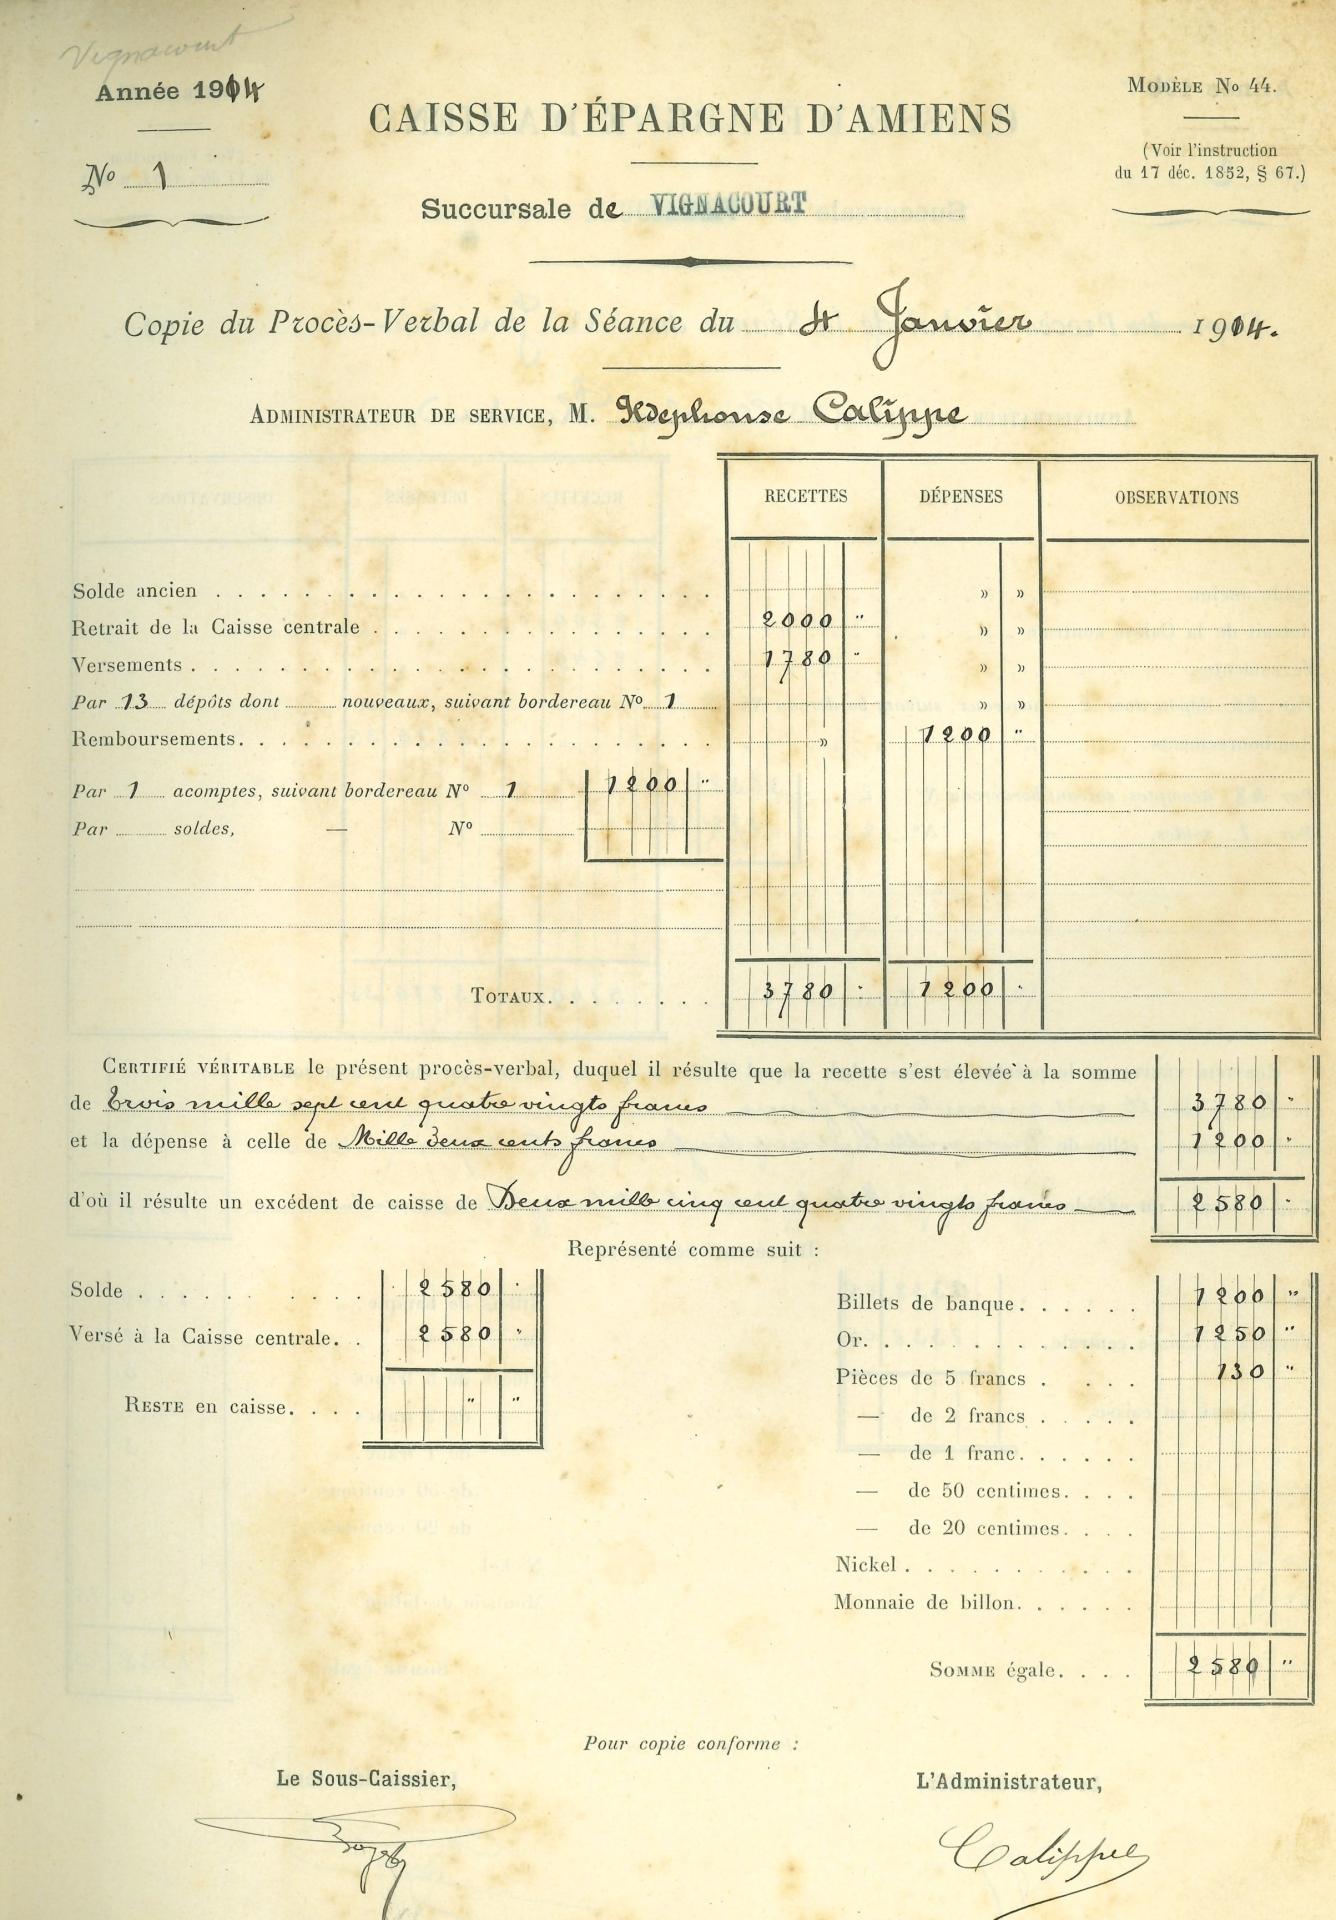 Vignacourt
Année 1914
Modèle No 44.
CAISSE D'ÉPARGNE D'AMIENS
No 1
(Voir l'instruction
du 17 déc. 1852, § 67.)
Succursale de VIGNACOURT
Copie du Procès-Verbal de la Séance du 4 Janvier 1914.
Administrateur de service, M. Ildephonse Calippe
RECETTES DÉPENSES OBSERVATIONS
Solde ancien . . . . . » »
Retrait de la Caisse centrale . . . . . 2000 " » »
Versements . . . . . 1780 " » »
Par 13 dépôts dont ...... nouveaux, suivant bordereau No 1 » »
Remboursements. . . . . » 1200 "
Par 1 acomptes, suivant bordereau No 1 1200 "
Par ...... soldes, — No ......
Totaux. . . . . 3780 " 1200 "
Certifié véritable le présent procès-verbal, duquel il résulte que la recette s'est élevée à la somme
de Trois mille sept cent quatre vingts francs 3780 "
et la dépense à celle de Mille deux cents francs 1200 "
d'où il résulte un excédent de caisse de Deux mille cinq cent quatre vingts francs 2580 "
Représenté comme suit :
Solde . . . . . 2580 "
Versé à la Caisse centrale. . 2580 "
Reste en caisse. . . . " "
Billets de banque. . . . . 1200 "
Or. . . . . 1250 "
Pièces de 5 francs . . . . 130 "
— de 2 francs . . . . .
— de 1 franc. . . . . .
— de 50 centimes. . . .
— de 20 centimes. . . .
Nickel . . . . .
Monnaie de billon. . . . .
Somme égale. . . . 2580 "
Pour copie conforme :
Le Sous-Caissier,
L'Administrateur,
Calippe